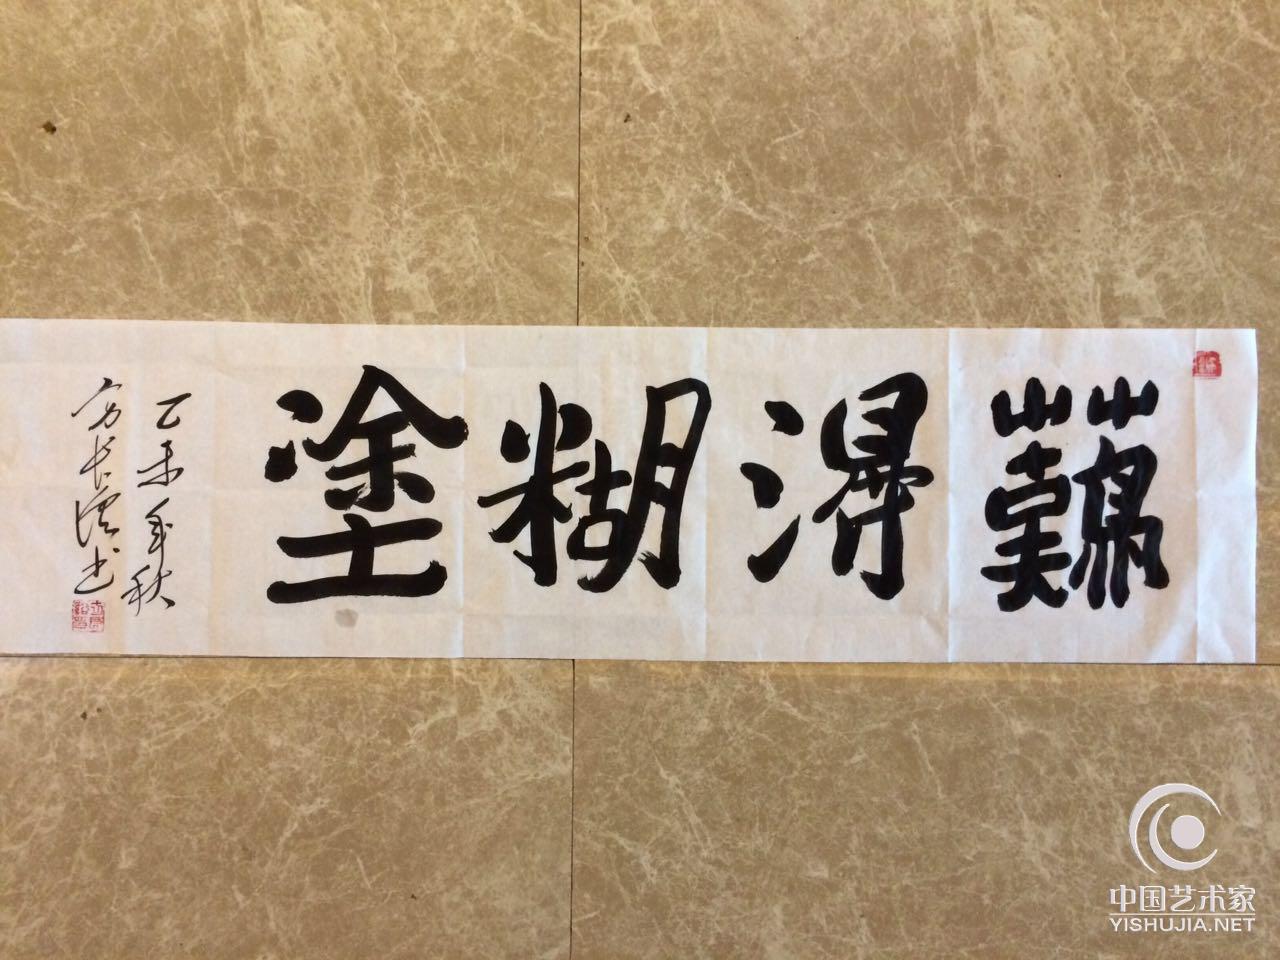 難得糊塗
乙未年秋
方长书
中国艺术家
YISHUJIA.NET